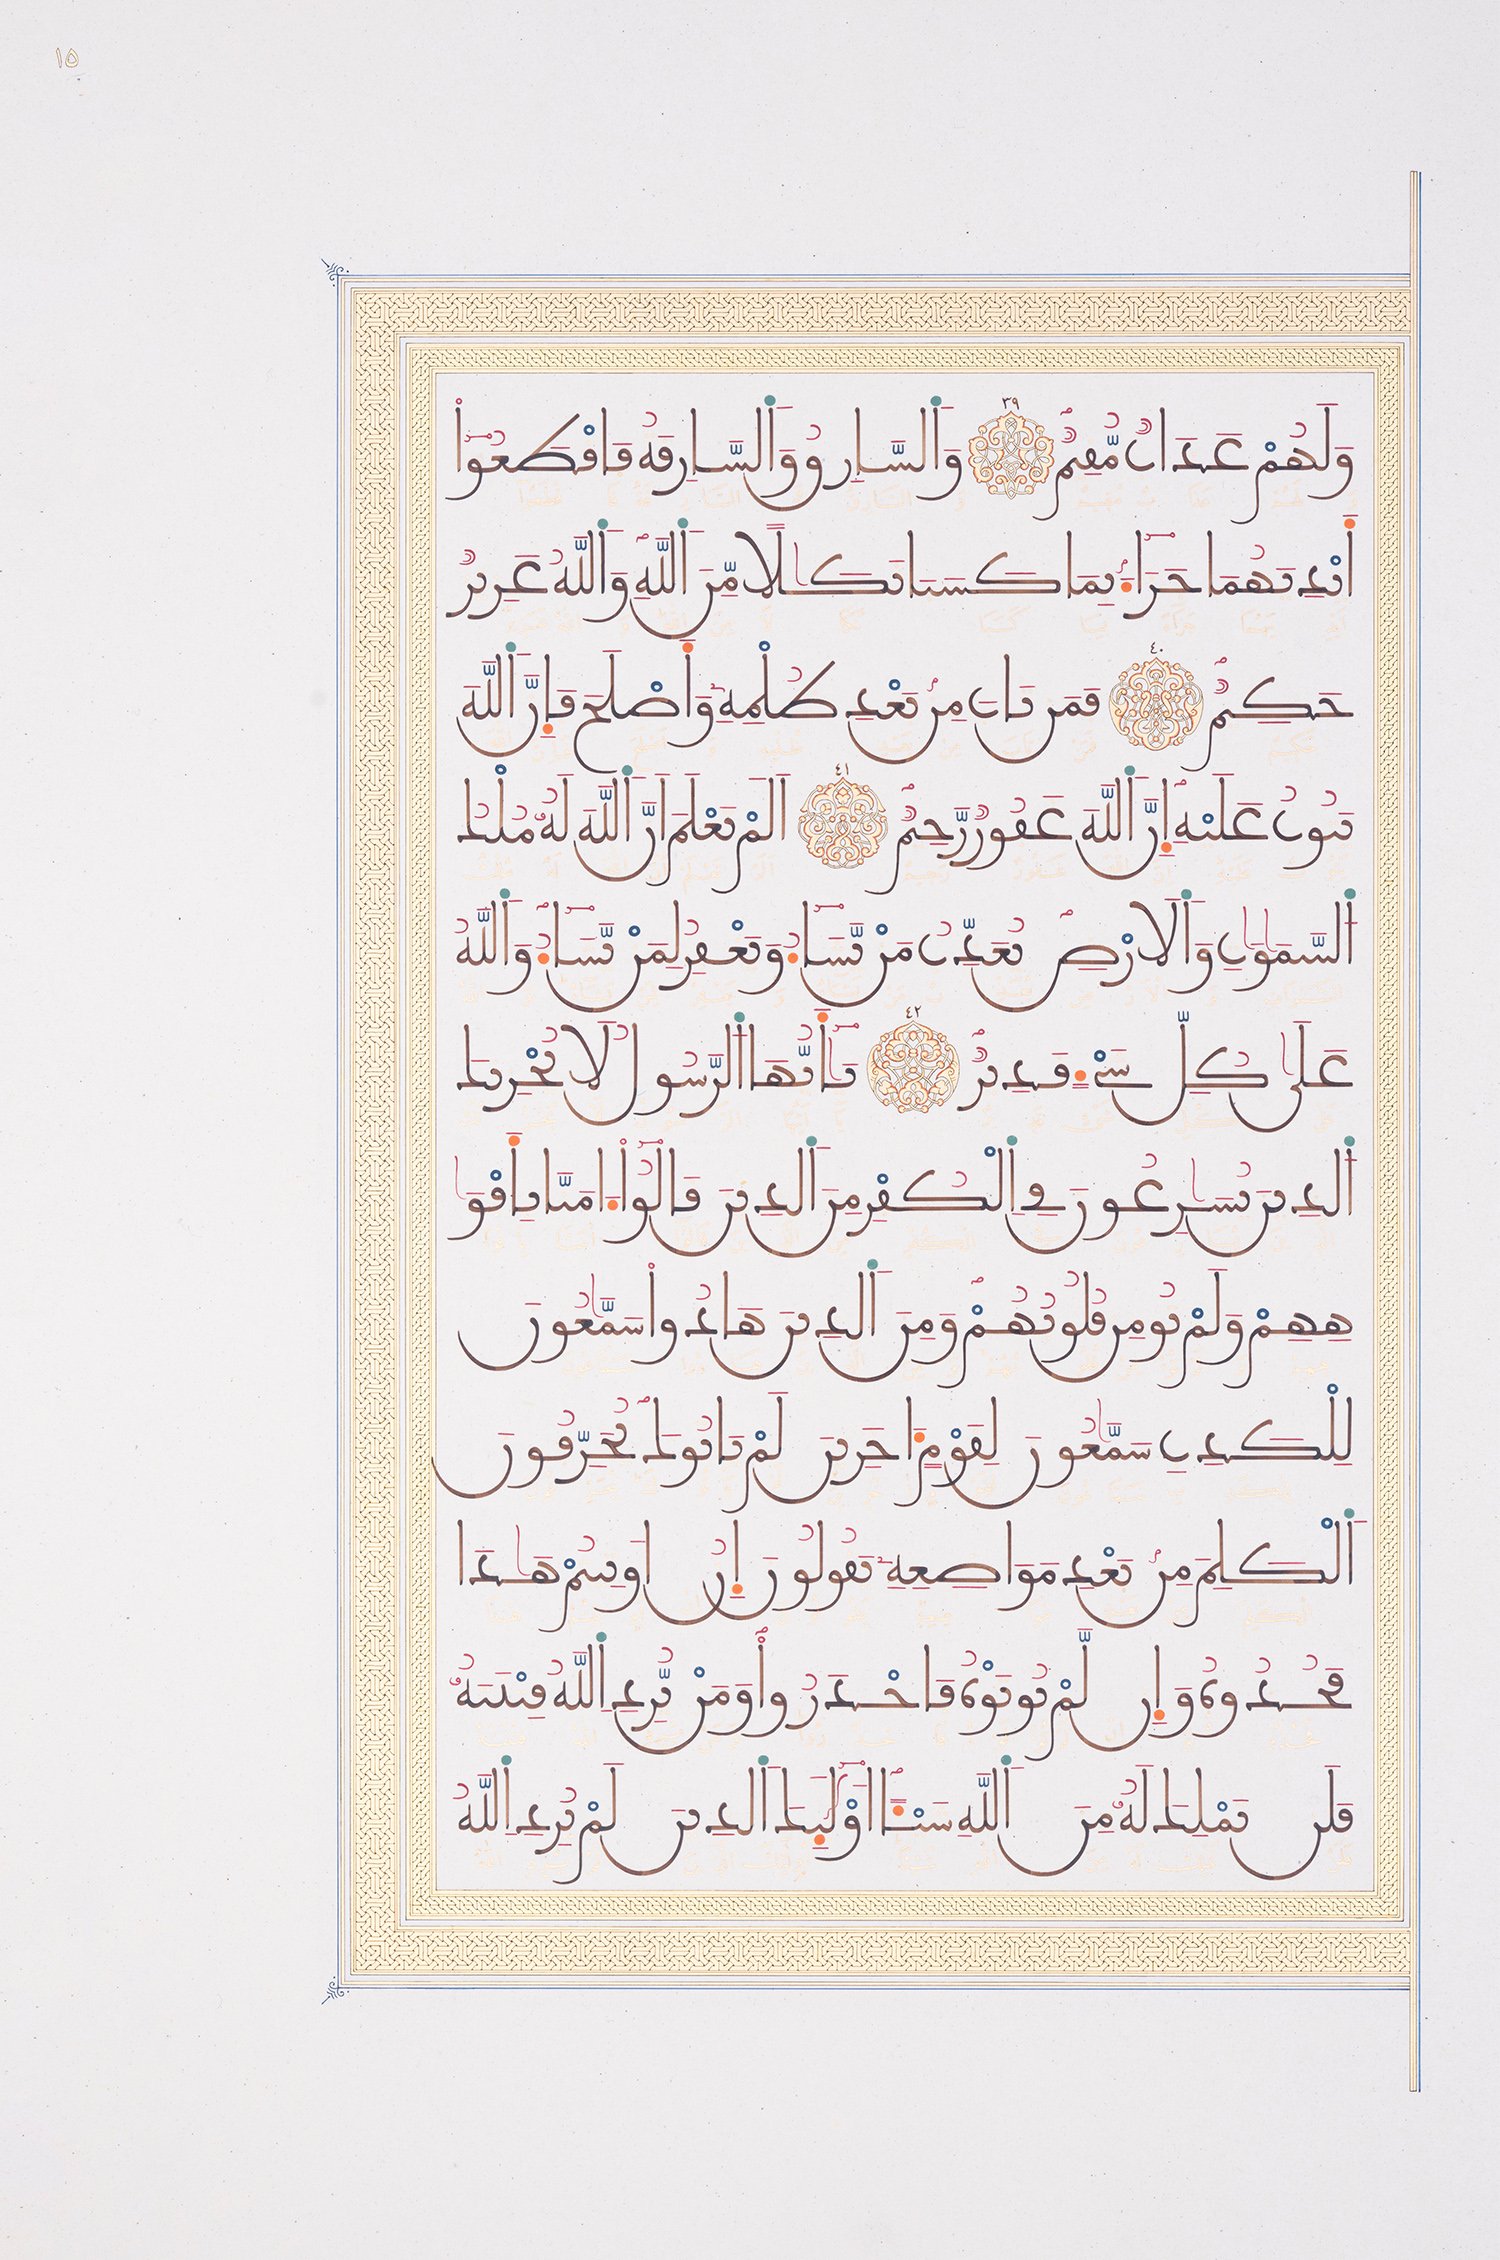 ١٥
وَلَهُمْ عَذَابٌ مُّقِيمٌ ٣٩ وَالسَّارِقُ وَالسَّارِقَةُ فَاقْطَعُوٓا
أَيْدِيَهُمَا جَزَآءَۢ بِمَا كَسَبَا نَكَٰلًا مِّنَ اللَّهِ وَاللَّهُ عَزِيزٌ
حَكِيمٌ ٤٠ فَمَن تَابَ مِنۢ بَعْدِ ظُلْمِهِۦ وَأَصْلَحَ فَإِنَّ اللَّهَ
يَتُوبُ عَلَيْهِ إِنَّ اللَّهَ غَفُورٌ رَّحِيمٌ ٤١ اَلَمْ تَعْلَمَ اَنَّ اللَّهَ لَهُۥ مُلْكُ
السَّمَٰوَٰتِ وَالَارْضِ يُعَذِّبُ مَنْ يَّشَآءُ وَيَغْفِرُ لِمَنْ يَّشَآءُ وَاللَّهُ
عَلَىٰ كُلِّ شَيْءٍ قَدِيرٌ ٤٢ يَٰٓأَيُّهَا الرَّسُولُ لَا يُحْزِنكَ
الذِينَ يُسَٰرِعُونَ فِي الْكُفْرِ مِنَ الذِينَ قَالُوٓا ءَامَنَّا بِأَفْوَٰ
هِهِمْ وَلَمْ تُومِن قُلُوبُهُمْ وَمِنَ الذِينَ هَادُوا سَمَّٰعُونَ
لِلْكَذِبِ سَمَّٰعُونَ لِقَوْمٍ ءَاخَرِينَ لَمْ يَاتُوكَ يُحَرِّفُونَ
الْكَلِمَ مِنۢ بَعْدِ مَوَاضِعِهِۦ يَقُولُونَ إِنُ اوتِيتُمْ هَٰذَا
فَخُذُوهُ وَإِن لَّمْ تُوتَوْهُ فَاحْذَرُوا وَمَنْ يُّرِدِ اللَّهُ فِتْنَتَهُۥ
فَلَن تَمْلِكَ لَهُۥ مِنَ اللَّهِ شَيْـًٔا اوْلَٰٓئِكَ الذِينَ لَمْ يُرِدِ اللَّهُ